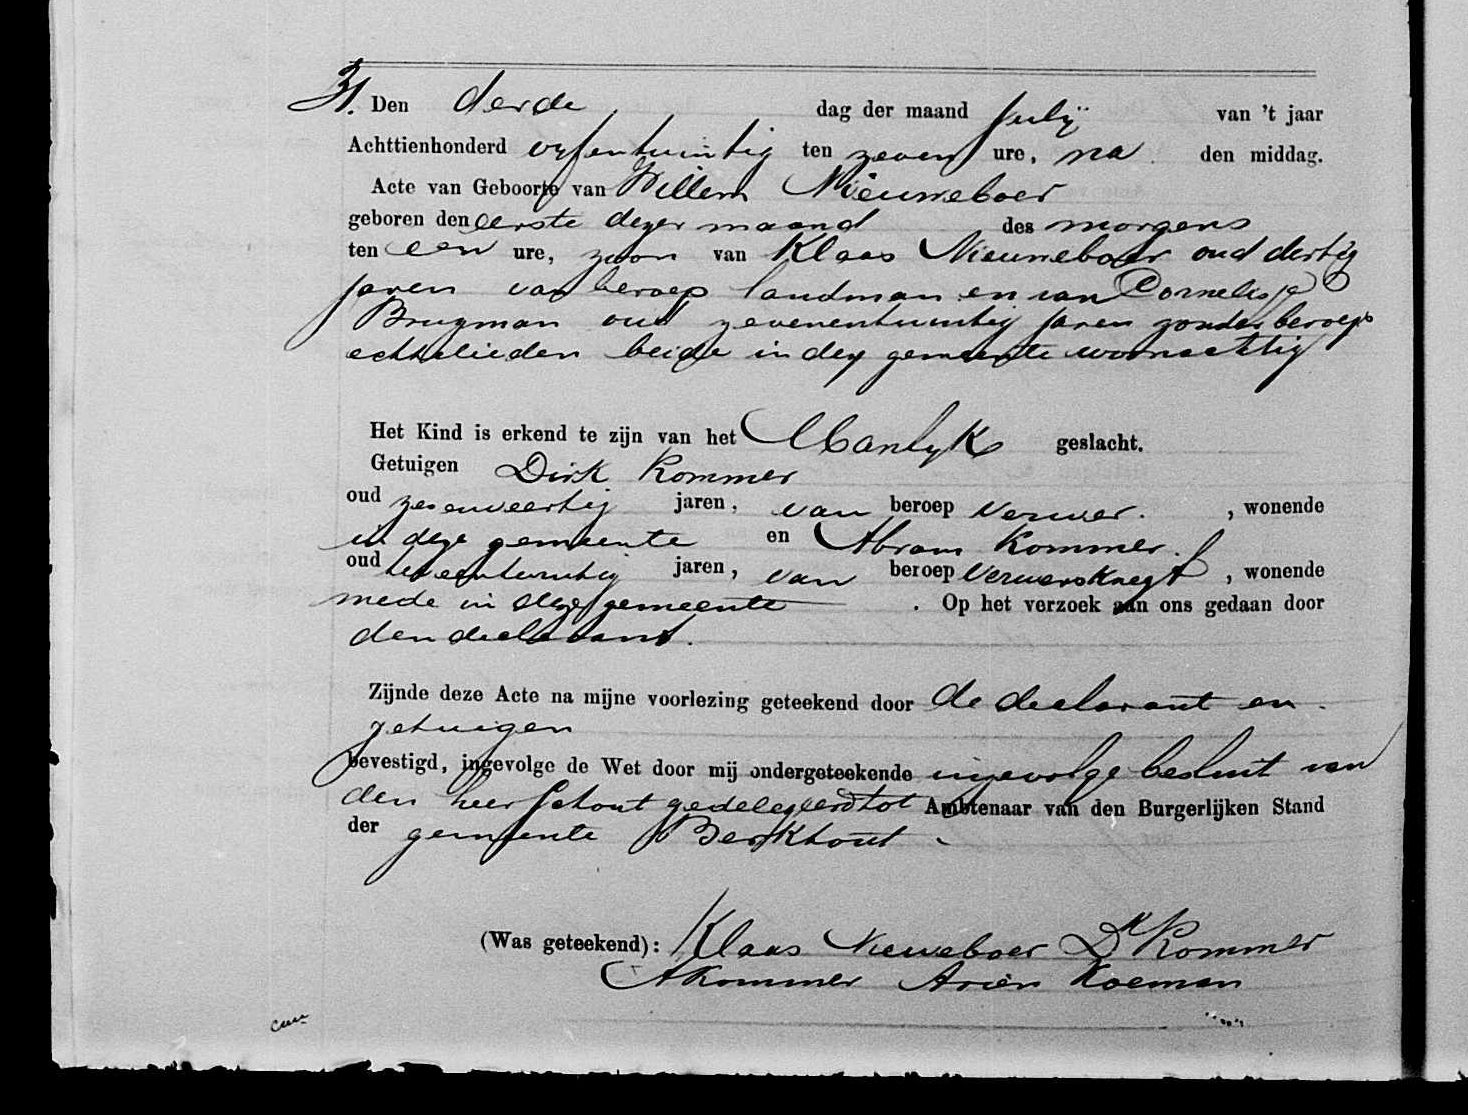 31. Den derde dag der maand Julÿ van 't jaar
Achttienhonderd vyfentwintig ten zeven ure, na den middag.
Acte van Geboorte van Willem Nieuweboer
geboren den eerste dezer maand des morgens
ten een ure, zoon van Klaas Nieuweboer oud dertig
jaren van beroep landman en van Cornelisje
Brugman oud zevenentwintig jaren zonder beroep
echtelieden beide in dez gemeente woonachtig
Het Kind is erkend te zijn van het Manlyk geslacht.
Getuigen Dirk Kommer
oud zesenveertig jaren, van beroep Verwer. , wonende
in deze gemeente en Abram Kommer.
oud tweentwintig jaren, van beroep Verwersknegt , wonende
mede in deze gemeente . Op het verzoek aan ons gedaan door
den declarant.
Zijnde deze Acte na mijne voorlezing geteekend door de declarant en
getuigen
bevestigd, ingevolge de Wet door mij ondergeteekende ingevolge besluit van
den heer Schout gedelegeerd tot Ambtenaar van den Burgerlijken Stand
der gemeente Berkhout
(Was geteekend): Klaas Nieuweboer Dk Kommer
A Kommer Arien Koeman